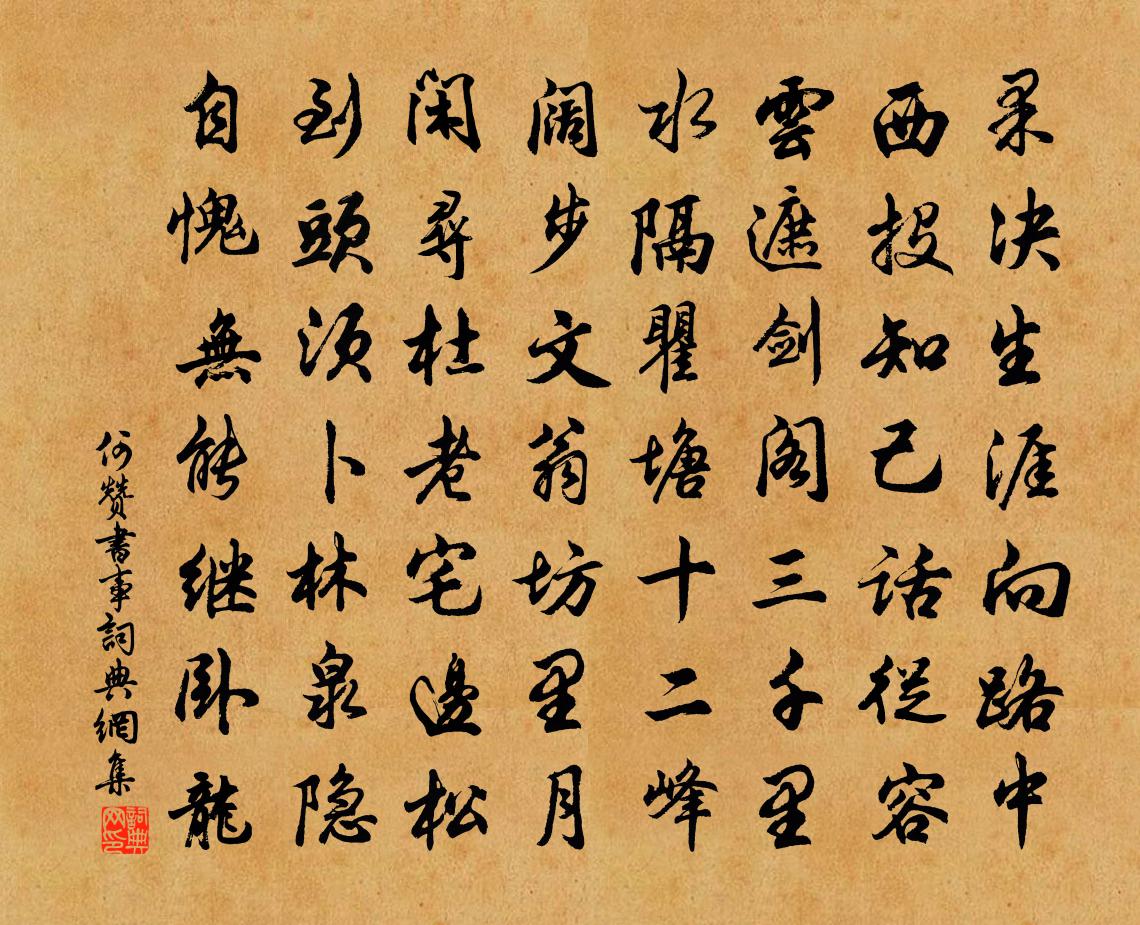 果决生涯向路中
西投知己话從容
雲遮剑阁三千里
水隔瞿塘十二峰
阔步文翁坊里月
闲尋杜老宅邊松
到頭须卜林泉隐
自愧無能继卧龍
何赞書事詞典網集
詞典网印